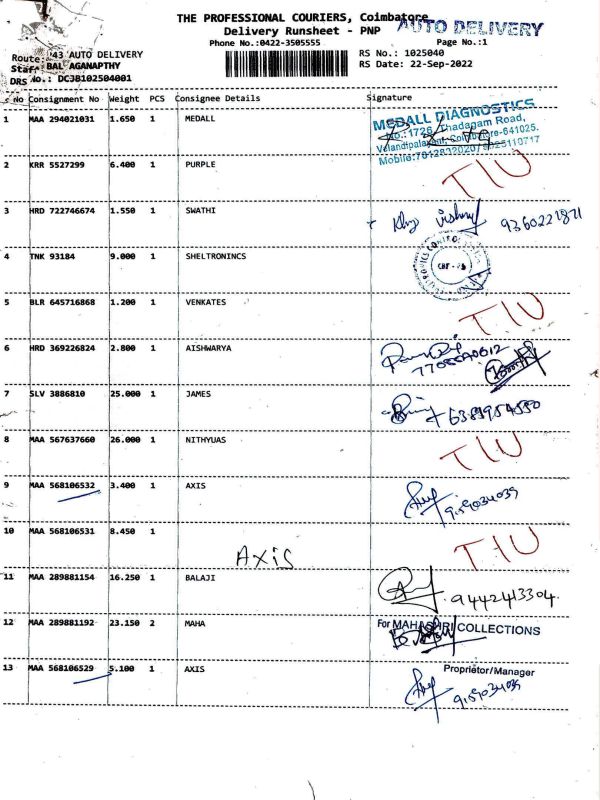 THE PROFESSIONAL COURIERS, Coimbatore
AUTO DELIVERY
Delivery Runsheet - PNP
Phone No.:0422-3505555
Page No.:1
Route: 43 AUTO DELIVERY
RS No.: 1025040
Staff: BAL AGANAPTHY
RS Date: 22-Sep-2022
DRS No.: DCJB102504001
No Consignment No Weight PCS Consignee Details Signature
1 MAA 294021031 1.650 1 MEDALL
MEDALL DIAGNOSTICS
No.:1726, Thadagam Road,
Velandipalayam, Coimbatore-641025.
2 KRR 5527299 6.400 1 PURPLE T/U
3 HRD 722746674 1.550 1 SWATHI
4 TNK 93184 9.000 1 SHELTRONINCS
CBE
5 BLR 645716868 1.200 1 VENKATES T/U
6 HRD 369226824 2.800 1 AISHWARYA
7 SLV 3886810 25.000 1 JAMES
8 MAA 567637660 26.000 1 NITHYUAS T/U
9 MAA 568106532 3.400 1 AXIS 9159034039
10 MAA 568106531 8.450 1 AXIS T/U
11 MAA 289881154 16.250 1 BALAJI 9442413304
12 MAA 289881192 23.150 2 MAHA For MAHASHRI COLLECTIONS
13 MAA 568106529 5.100 1 AXIS Proprietor/Manager
9159034039